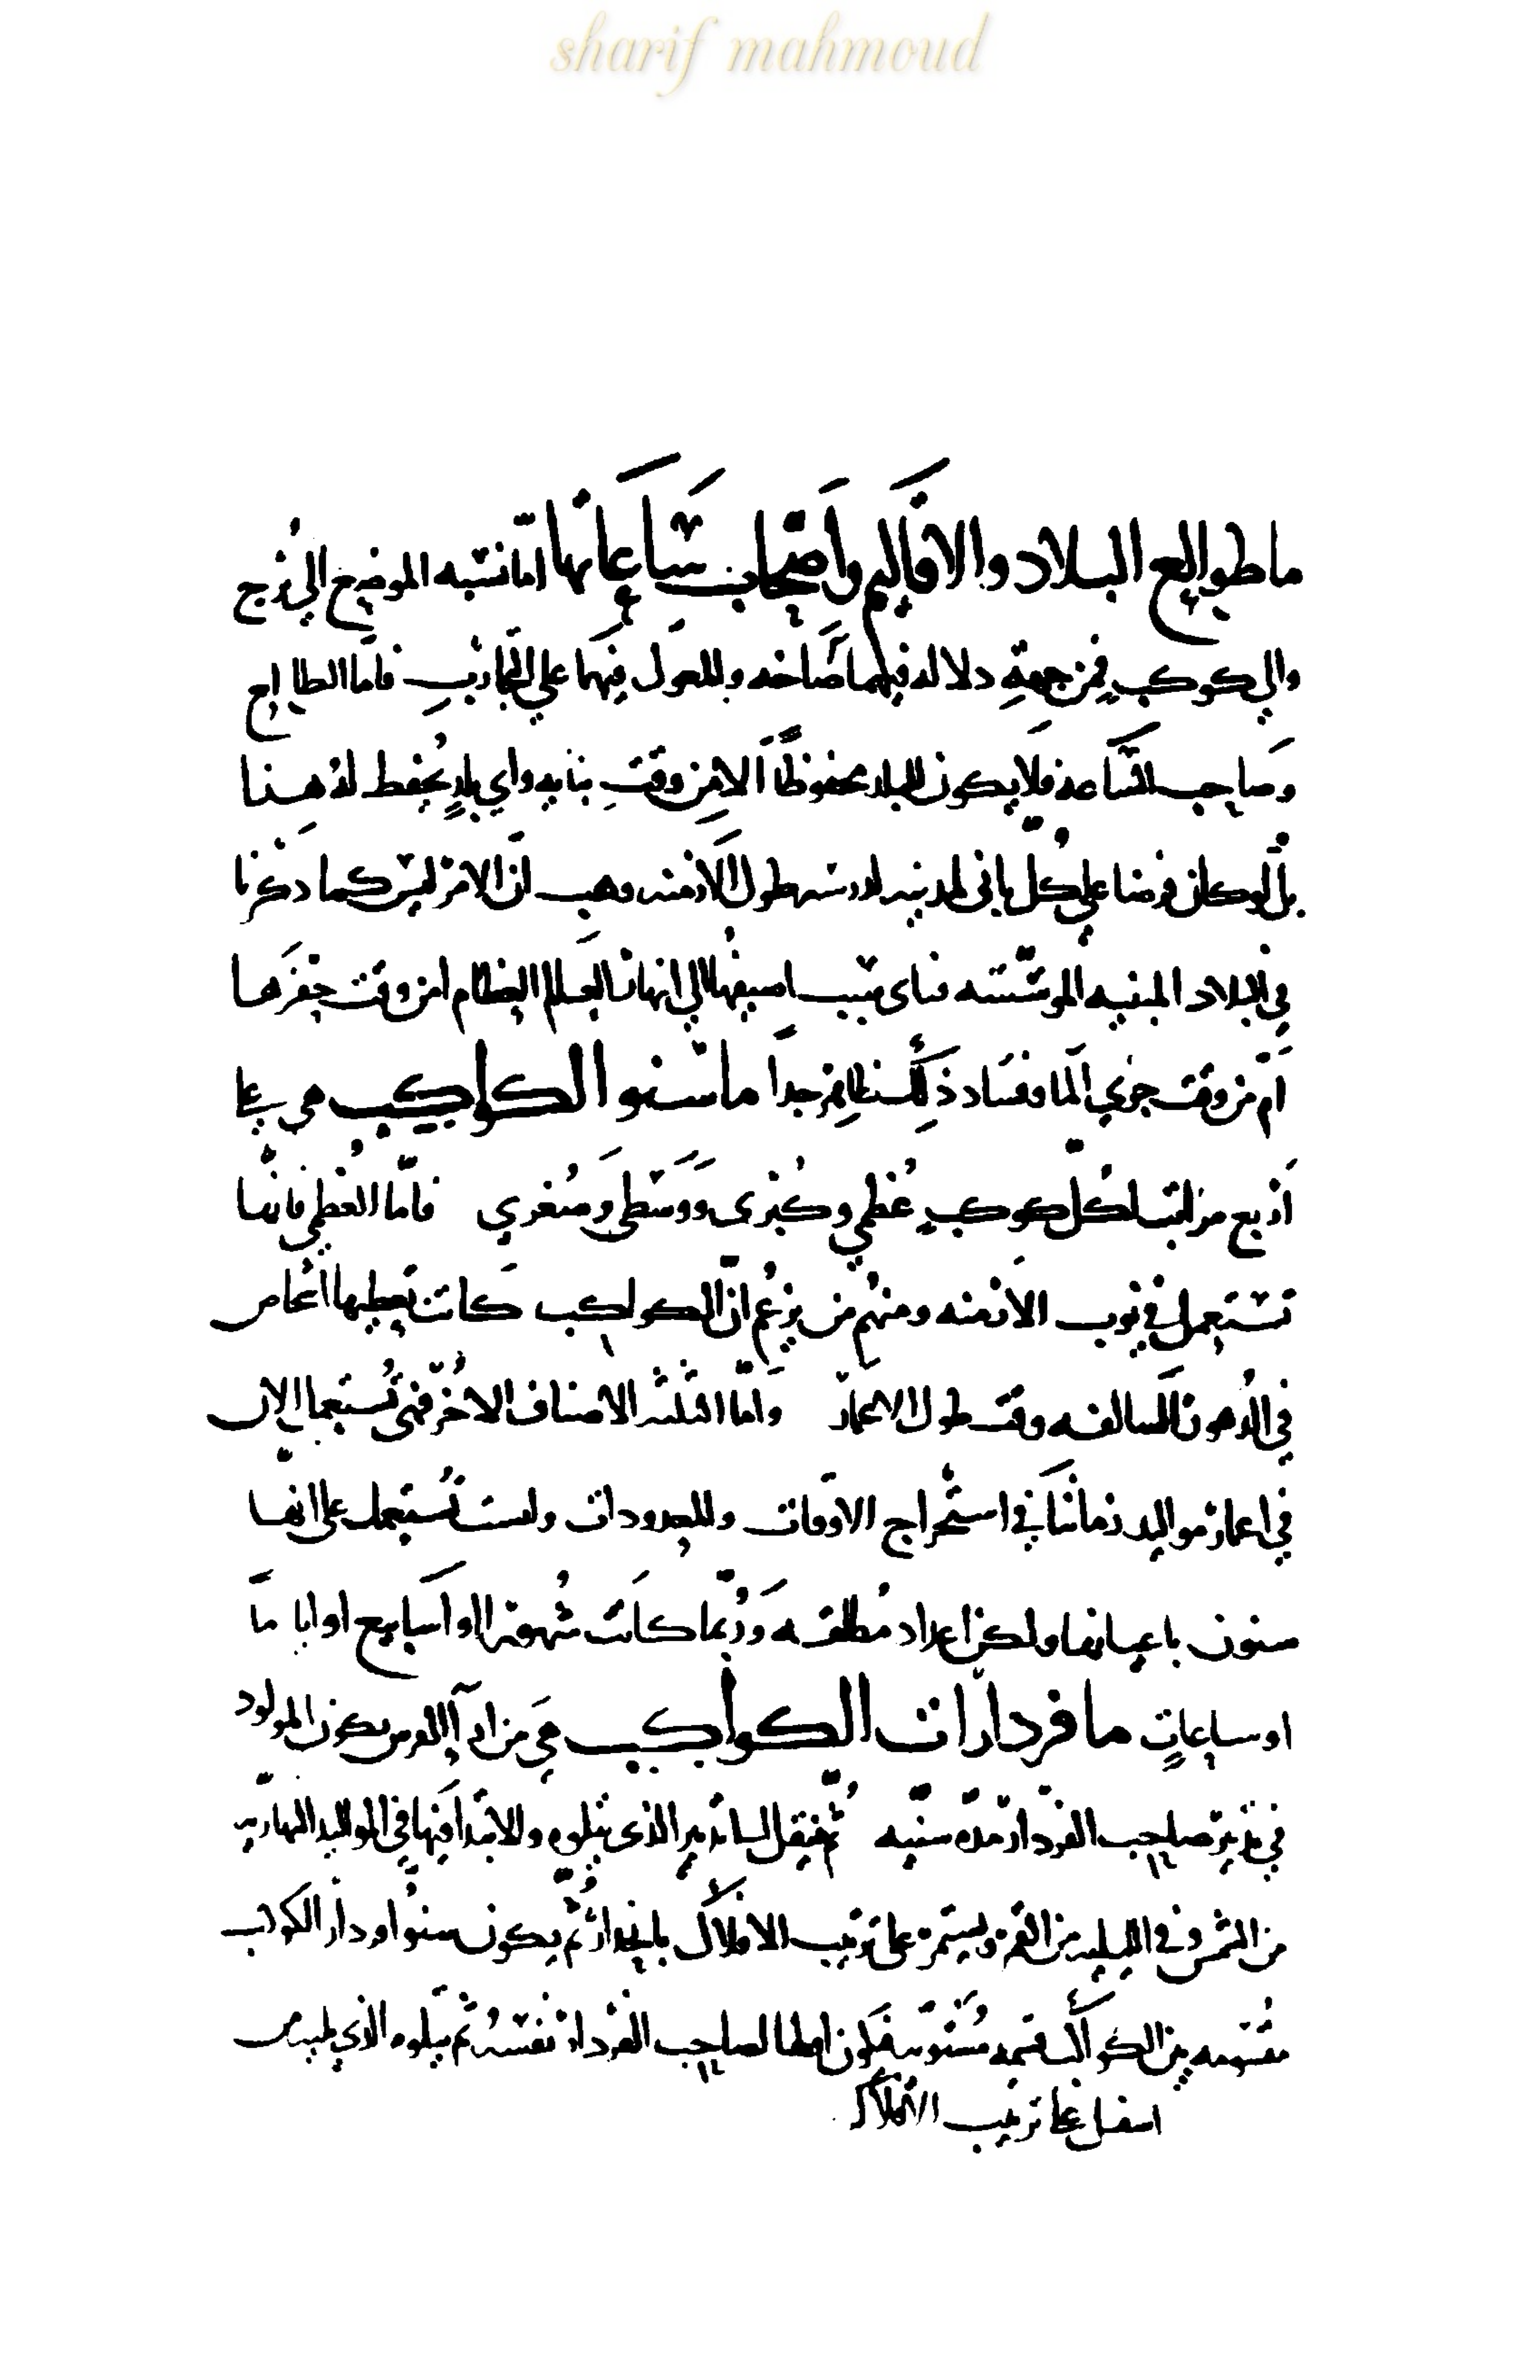 sharif mahmoud
ما طوالع البلاد والاقاليم واصحاب ساعاتها اما نسبه الموضع الي برج
والي كوكب فمن جهة دلاله فيهما صالحه والمعول فيهما علي التجارب فاما الطالع
وصاحب الساعه فلا يكون للبلد محفوظا الا من وقت بنايه واي بلد يحفظ له هذا
بل لو كان فرضا علي كل باني لمدينه لدرسه طول الازمنه وهب ان الامر ليس كما ذكرنا
في البلاد المبنيه الموسسه فباى سبب اضيفها الي انهار العالم العظام امن وقت حفرها
ام من وقت جري الما وفساد ذلك ظاهر جدا ما سنو الكواكب هي علي
اربع مراتب لكل كوكب عظمي وكبرى ووسطى وصغري فاما العظمي فانها
تستعمل في نوب الازمنه ومنهم من يزعم ان الكواكب كانت تعطيها اشخاص
في الدهور السالفه وقت طول الاعمار واما الثلثه الاصناف الاخر فهي تستعمل الان
في اعمار مواليد زماننا في استخراج الاوقات والحدودات وليست تستعمل على انها
سنون باعيانها ولكن اعداد مطلقه وربما كانت شهورا او اسابيع او اياما
او ساعات ما فردارات الكواكب هي من ارا الفرس يكون المولود
في تدبير صاحب الفردار مدة سنيه ثم ينتقل الي تدبير الذى يتلوه والابتدا فيها في المواليد النهاريه
من الشمس وفي الليليه من القمر ويستمر على ترتيب الافلاك بانحدار ثم يكون سنو ادوار الكواكب
مقسومه بين الكواكب قسمه مستويه فيكون اولها لصاحب الفردار نفسه ثم يتلوه الذي يليه من
اسفل علي ترتيب الافلاك